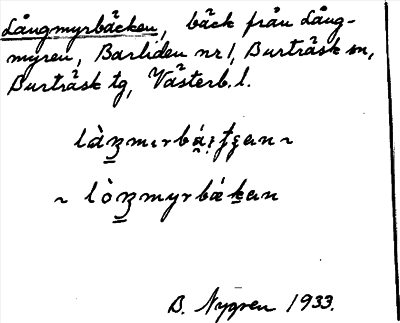 Långmyrbäcken, bäck från Lång-
myren, Barliden nr 1, Burträsk sn,
Burträsk tg, Västerb. l.
~ lòŋmyrbákan
B. Nygren 1933.